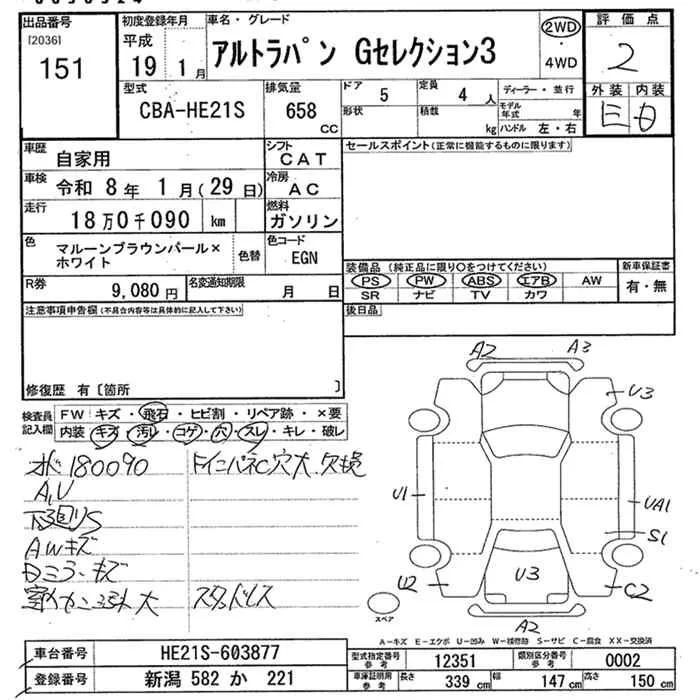 出品番号
[2036]
151
初度登録年月
平成
19 1月
車名・グレード
アルトラパン Gセレクション3
2WD
4WD
評価点
2
外装 内装
E D
型式
CBA-HE21S
排気量
658
cc
ドア 5
定員 4人
形状
積載
kg
ディーラー・並行
モデル年式 年
ハンドル 左・右
車歴
自家用
シフト
CAT
車検
令和 8年 1月(29日)
冷房
AC
走行
18万0千090 km
燃料
ガソリン
色
マルーンブラウンパール×
ホワイト
色替
色コード
EGN
R券
9,080円
名変通知期限
月 日
セールスポイント(正常に機能するものに限ります)
装備品 (純正品に限り○をつけてください)
PS PW ABS エアB AW
SR ナビ TV カワ
新車保証書
有・無
後日品
注意事項申告欄(不具合内容等は具体的に記入して下さい)
修復歴 有〔箇所 〕
検査員
記入欄
FW キズ・飛石・ヒビ割・リペア跡・×要
内装 キズ・汚レ・コゲ・穴・スレ・キレ・破レ
180090
A,U
下廻りS
AWキズ
Dミラーキズ
スタッドレス
A2 A3
U3
U1
UA1
S1
U2
U3
C2
A2
スペア
A-キズ E-エクボ U-凹み W-補修跡 S-サビ C-腐食 XX-交換済
車台番号
HE21S-603877
登録番号
新潟 582 か 221
型式指定番号
参考
12351
類別区分番号
参考
0002
車庫証明用
参考
長さ 339 cm
幅 147 cm
高さ 150 cm